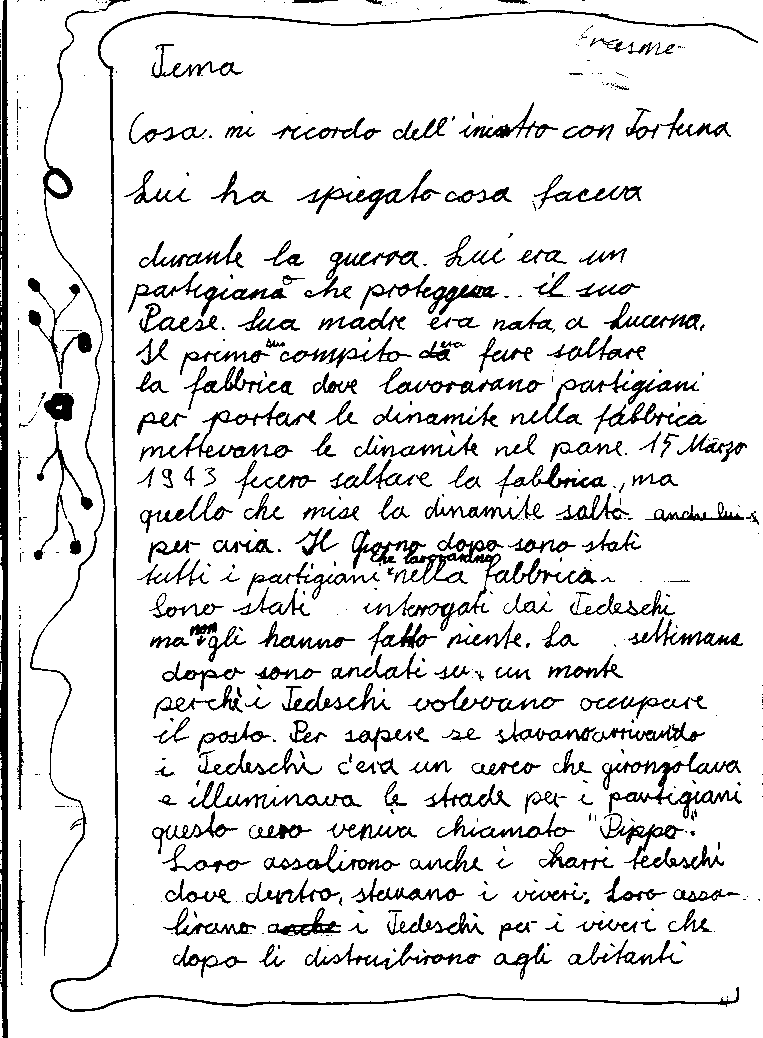 Erasmo
Tema
Cosa. mi ricordo dell'incontro con Fortuna
Lui ha spiegato cosa faceva
durante la guerra. Lui era un
partigiano che proteggeva il suo
Paese. Sua madre era nata a Lucerna.
Il primo suo compito era fare saltare
la fabbrica dove lavorarano partigiani
per portare le dinamite nella fabbrica
mettevano le dinamite nel pane. 15 Marzo
1943 fecero saltare la fabbrica, ma
quello che mise la dinamite saltò anche lui
per aria. Il Giorno dopo sono stati
tutti i partigiani che lavoravano nella fabbrica.
Sono stati interogati dai Tedeschi
ma non gli hanno fatto niente. La settimana
dopo sono andati su un monte
perchè i Tedeschi volevano occupare
il posto. Per sapere se stavano arrivando
i Tedeschi c'era un aereo che girongolava
e illuminava le strade per i partigiani
questo aero veniva chiamato "Pippo".
Loro assalirono anche i charri tedeschi
dove dentro, stavano i viveri. Loro assa-
lirano anche i Tedeschi per i viveri che
dopo li distruibirono agli abitanti